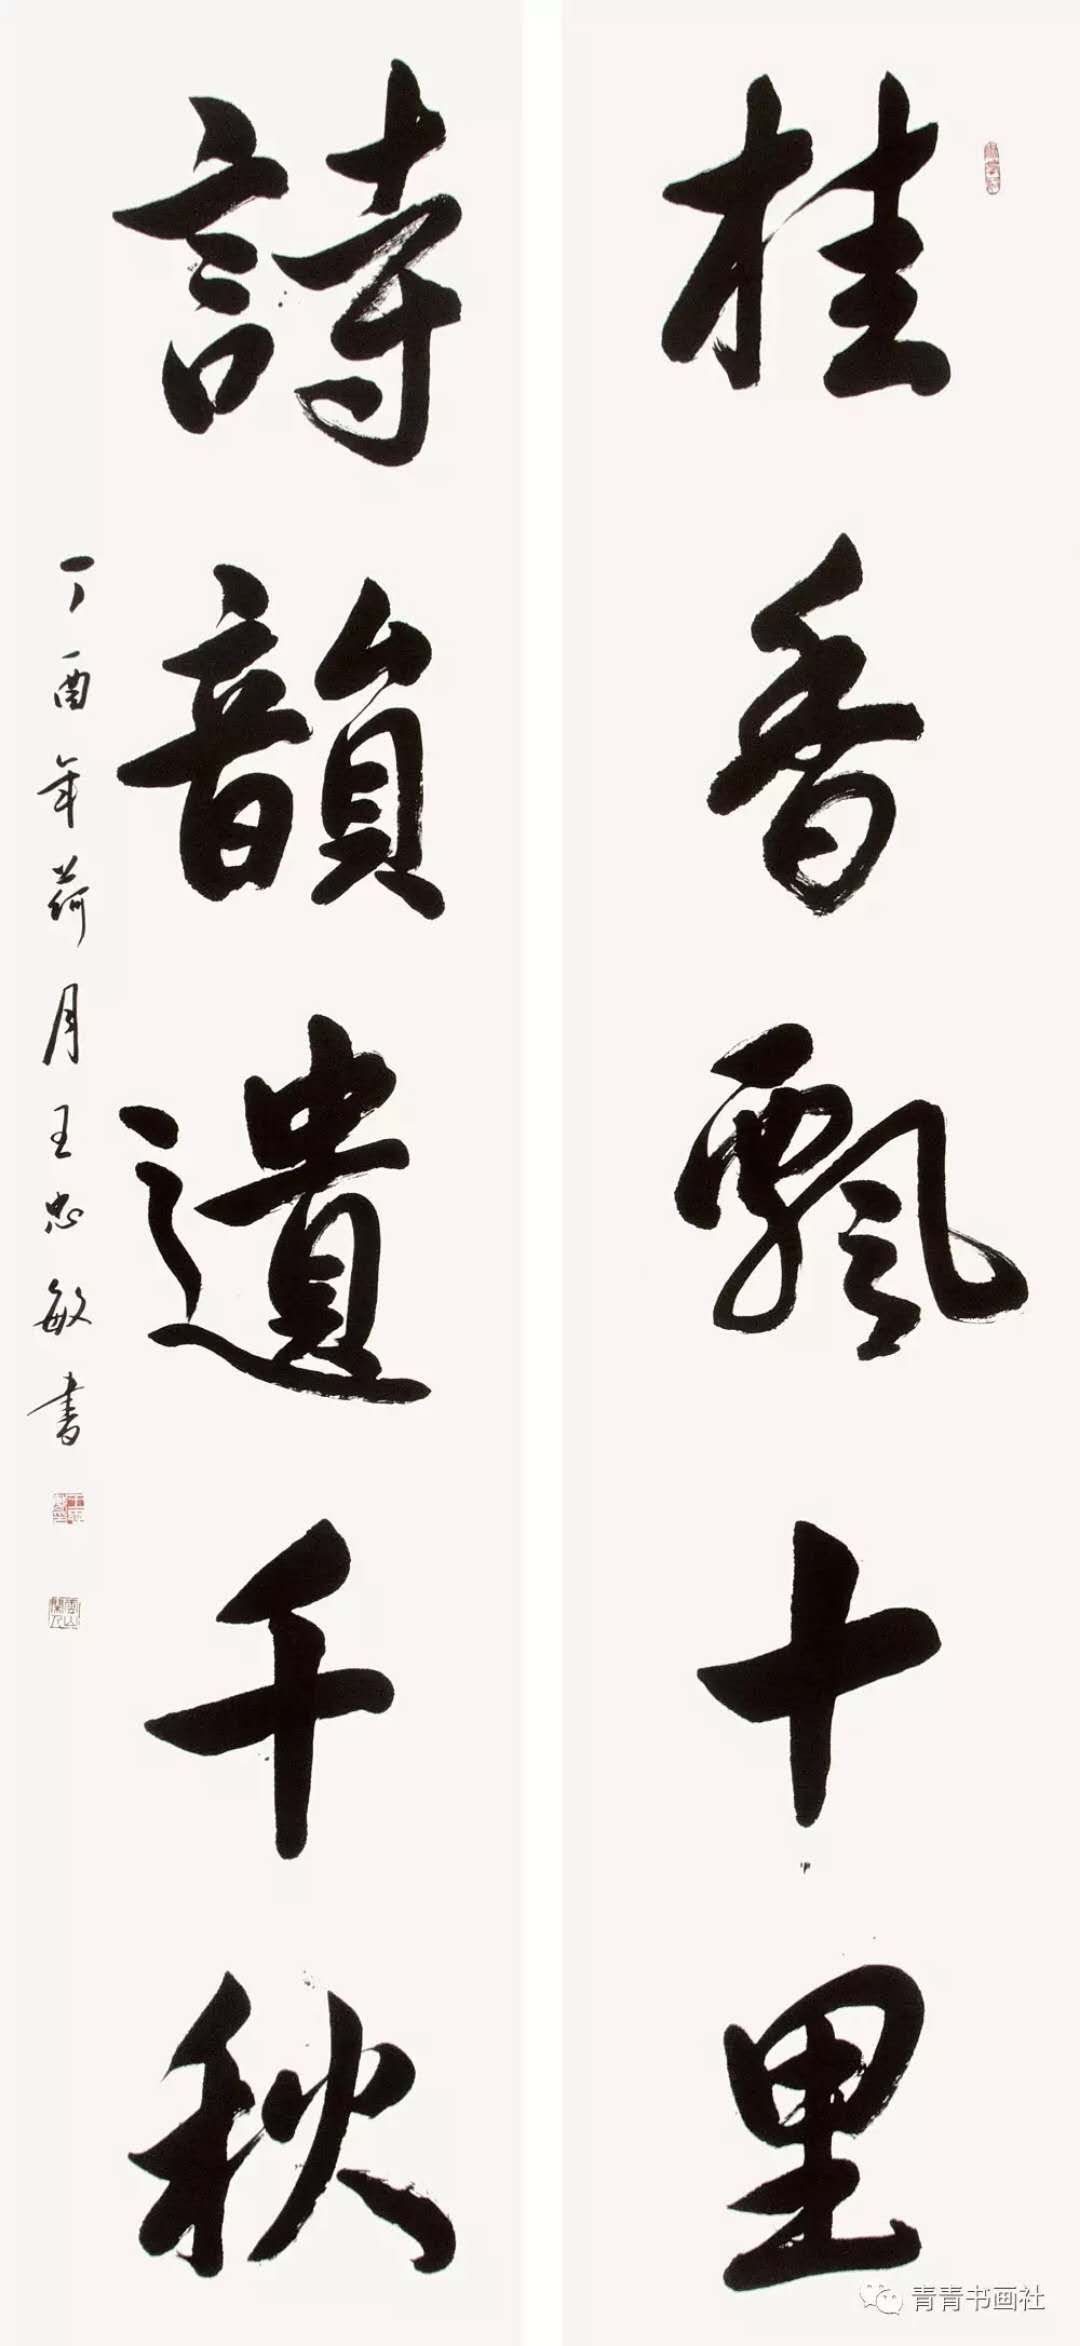 桂香飄十里
詩韻遺千秋
丁酉年荷月王忠敏书
青青书画社